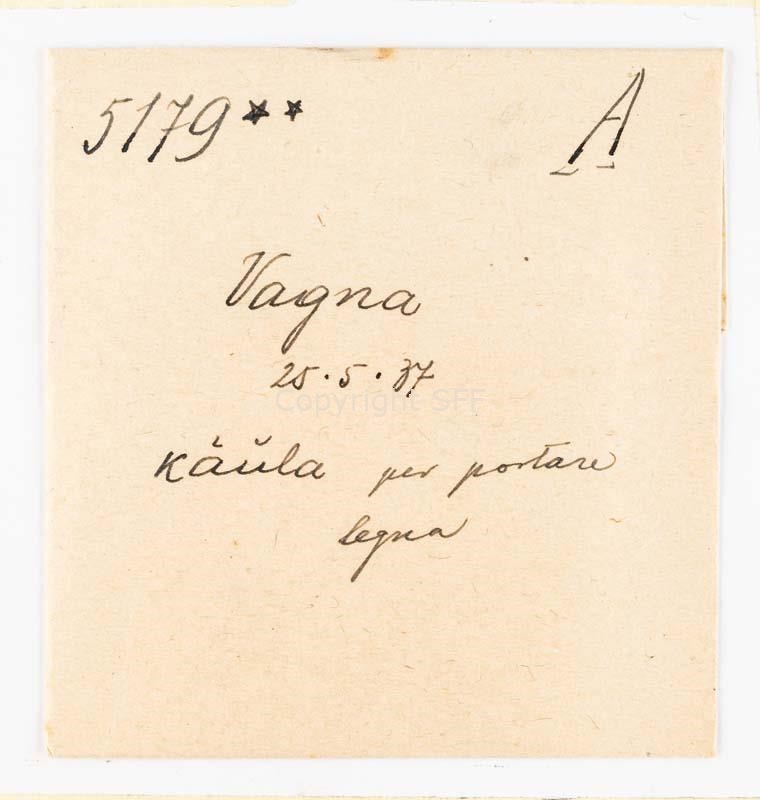 5179** A
Vagna
25.5.37
Copyright SPF
käŭla per portare
legna